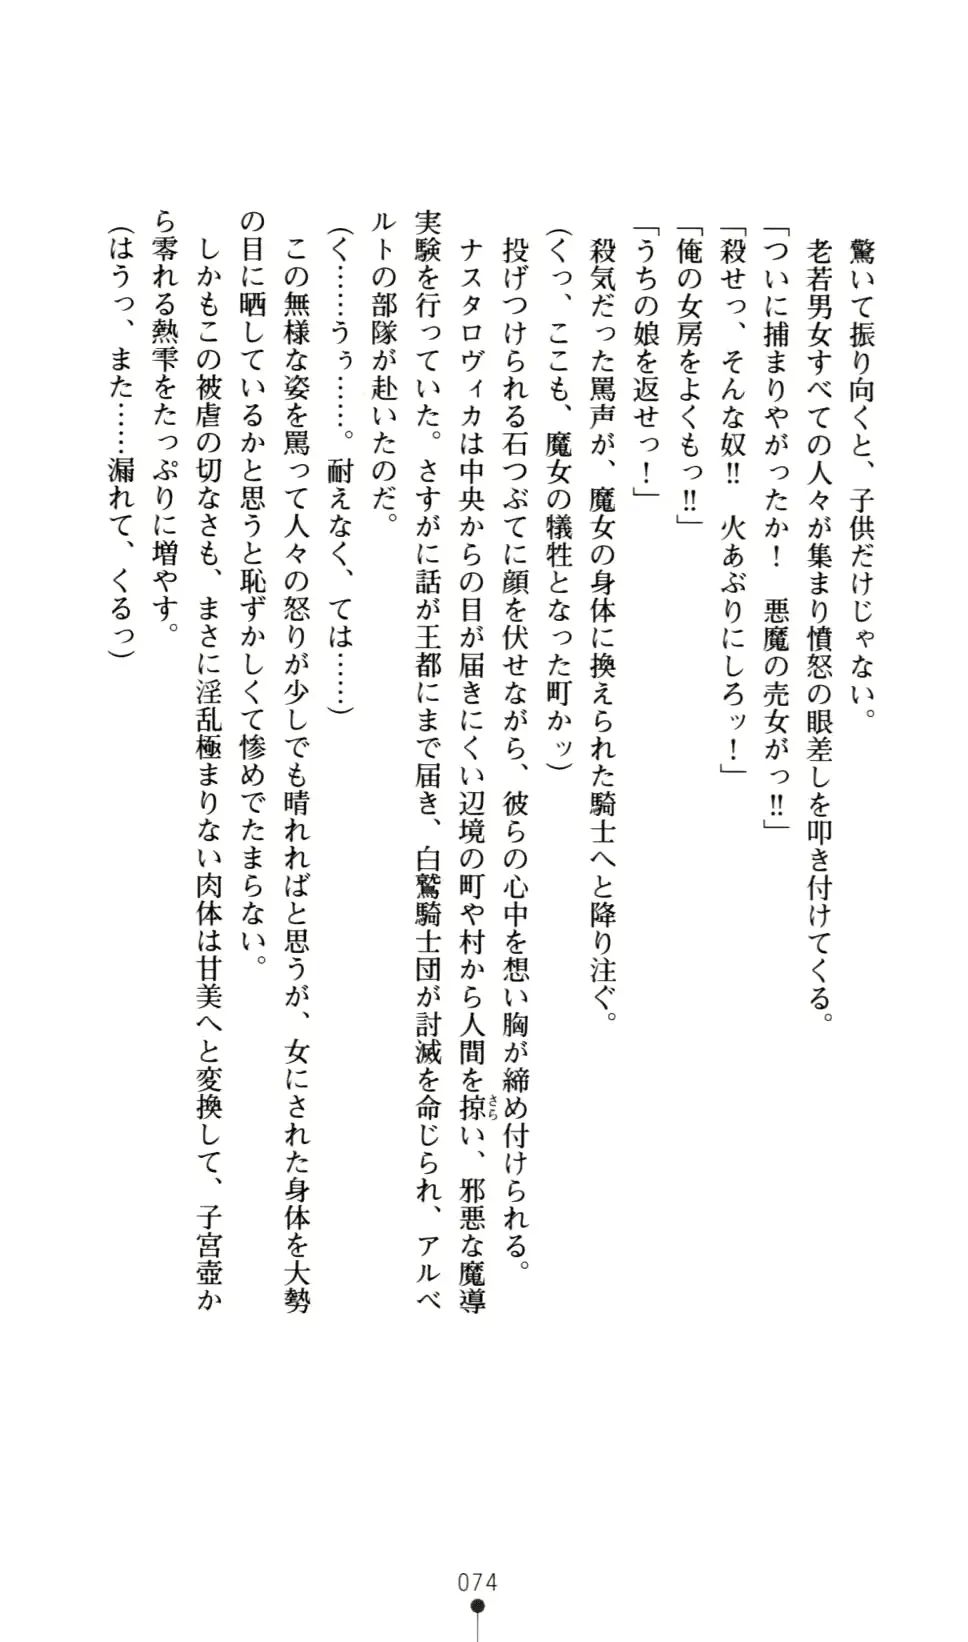 驚いて振り向くと、子供だけじゃない。
老若男女すべての人々が集まり憤怒の眼差しを叩き付けてくる。
「ついに捕まりやがったか！　悪魔の売女がっ‼」
「殺せっ、そんな奴‼　火あぶりにしろッ！」
「俺の女房をよくもっ‼」
「うちの娘を返せっ！」
殺気だった罵声が、魔女の身体に換えられた騎士へと降り注ぐ。
（くっ、ここも、魔女の犠牲となった町かッ）
投げつけられる石つぶてに顔を伏せながら、彼らの心中を想い胸が締め付けられる。
ナスタロヴィカは中央からの目が届きにくい辺境の町や村から人間を掠い、邪悪な魔導
さら
実験を行っていた。さすがに話が王都にまで届き、白鷲騎士団が討滅を命じられ、アルベ
ルトの部隊が赴いたのだ。
（く……うぅ……。耐えなく、ては……）
この無様な姿を罵って人々の怒りが少しでも晴れればと思うが、女にされた身体を大勢
の目に晒しているかと思うと恥ずかしくて惨めでたまらない。
しかもこの被虐の切なさも、まさに淫乱極まりない肉体は甘美へと変換して、子宮壺か
ら零れる熱雫をたっぷりに増やす。
（はうっ、また……漏れて、くるっ）
074